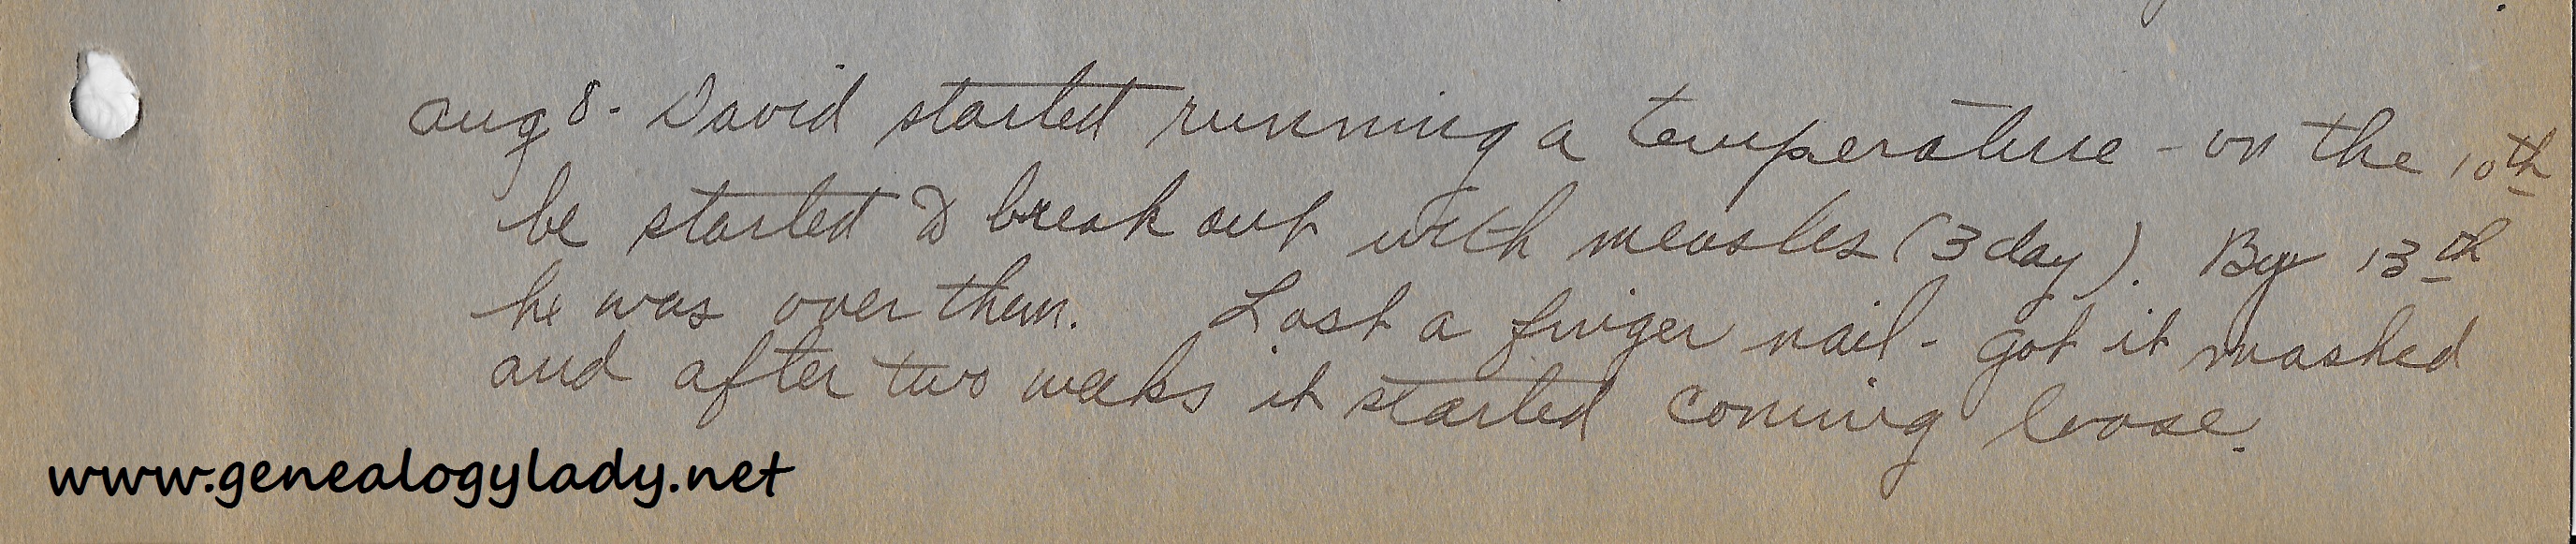 Aug 8 - David started running a temperature - on the 10th
he started to break out with measles (3 day). By 13th
he was over them. Lost a finger nail - got it mashed
and after two weeks it started coming loose.
www.genealogylady.net